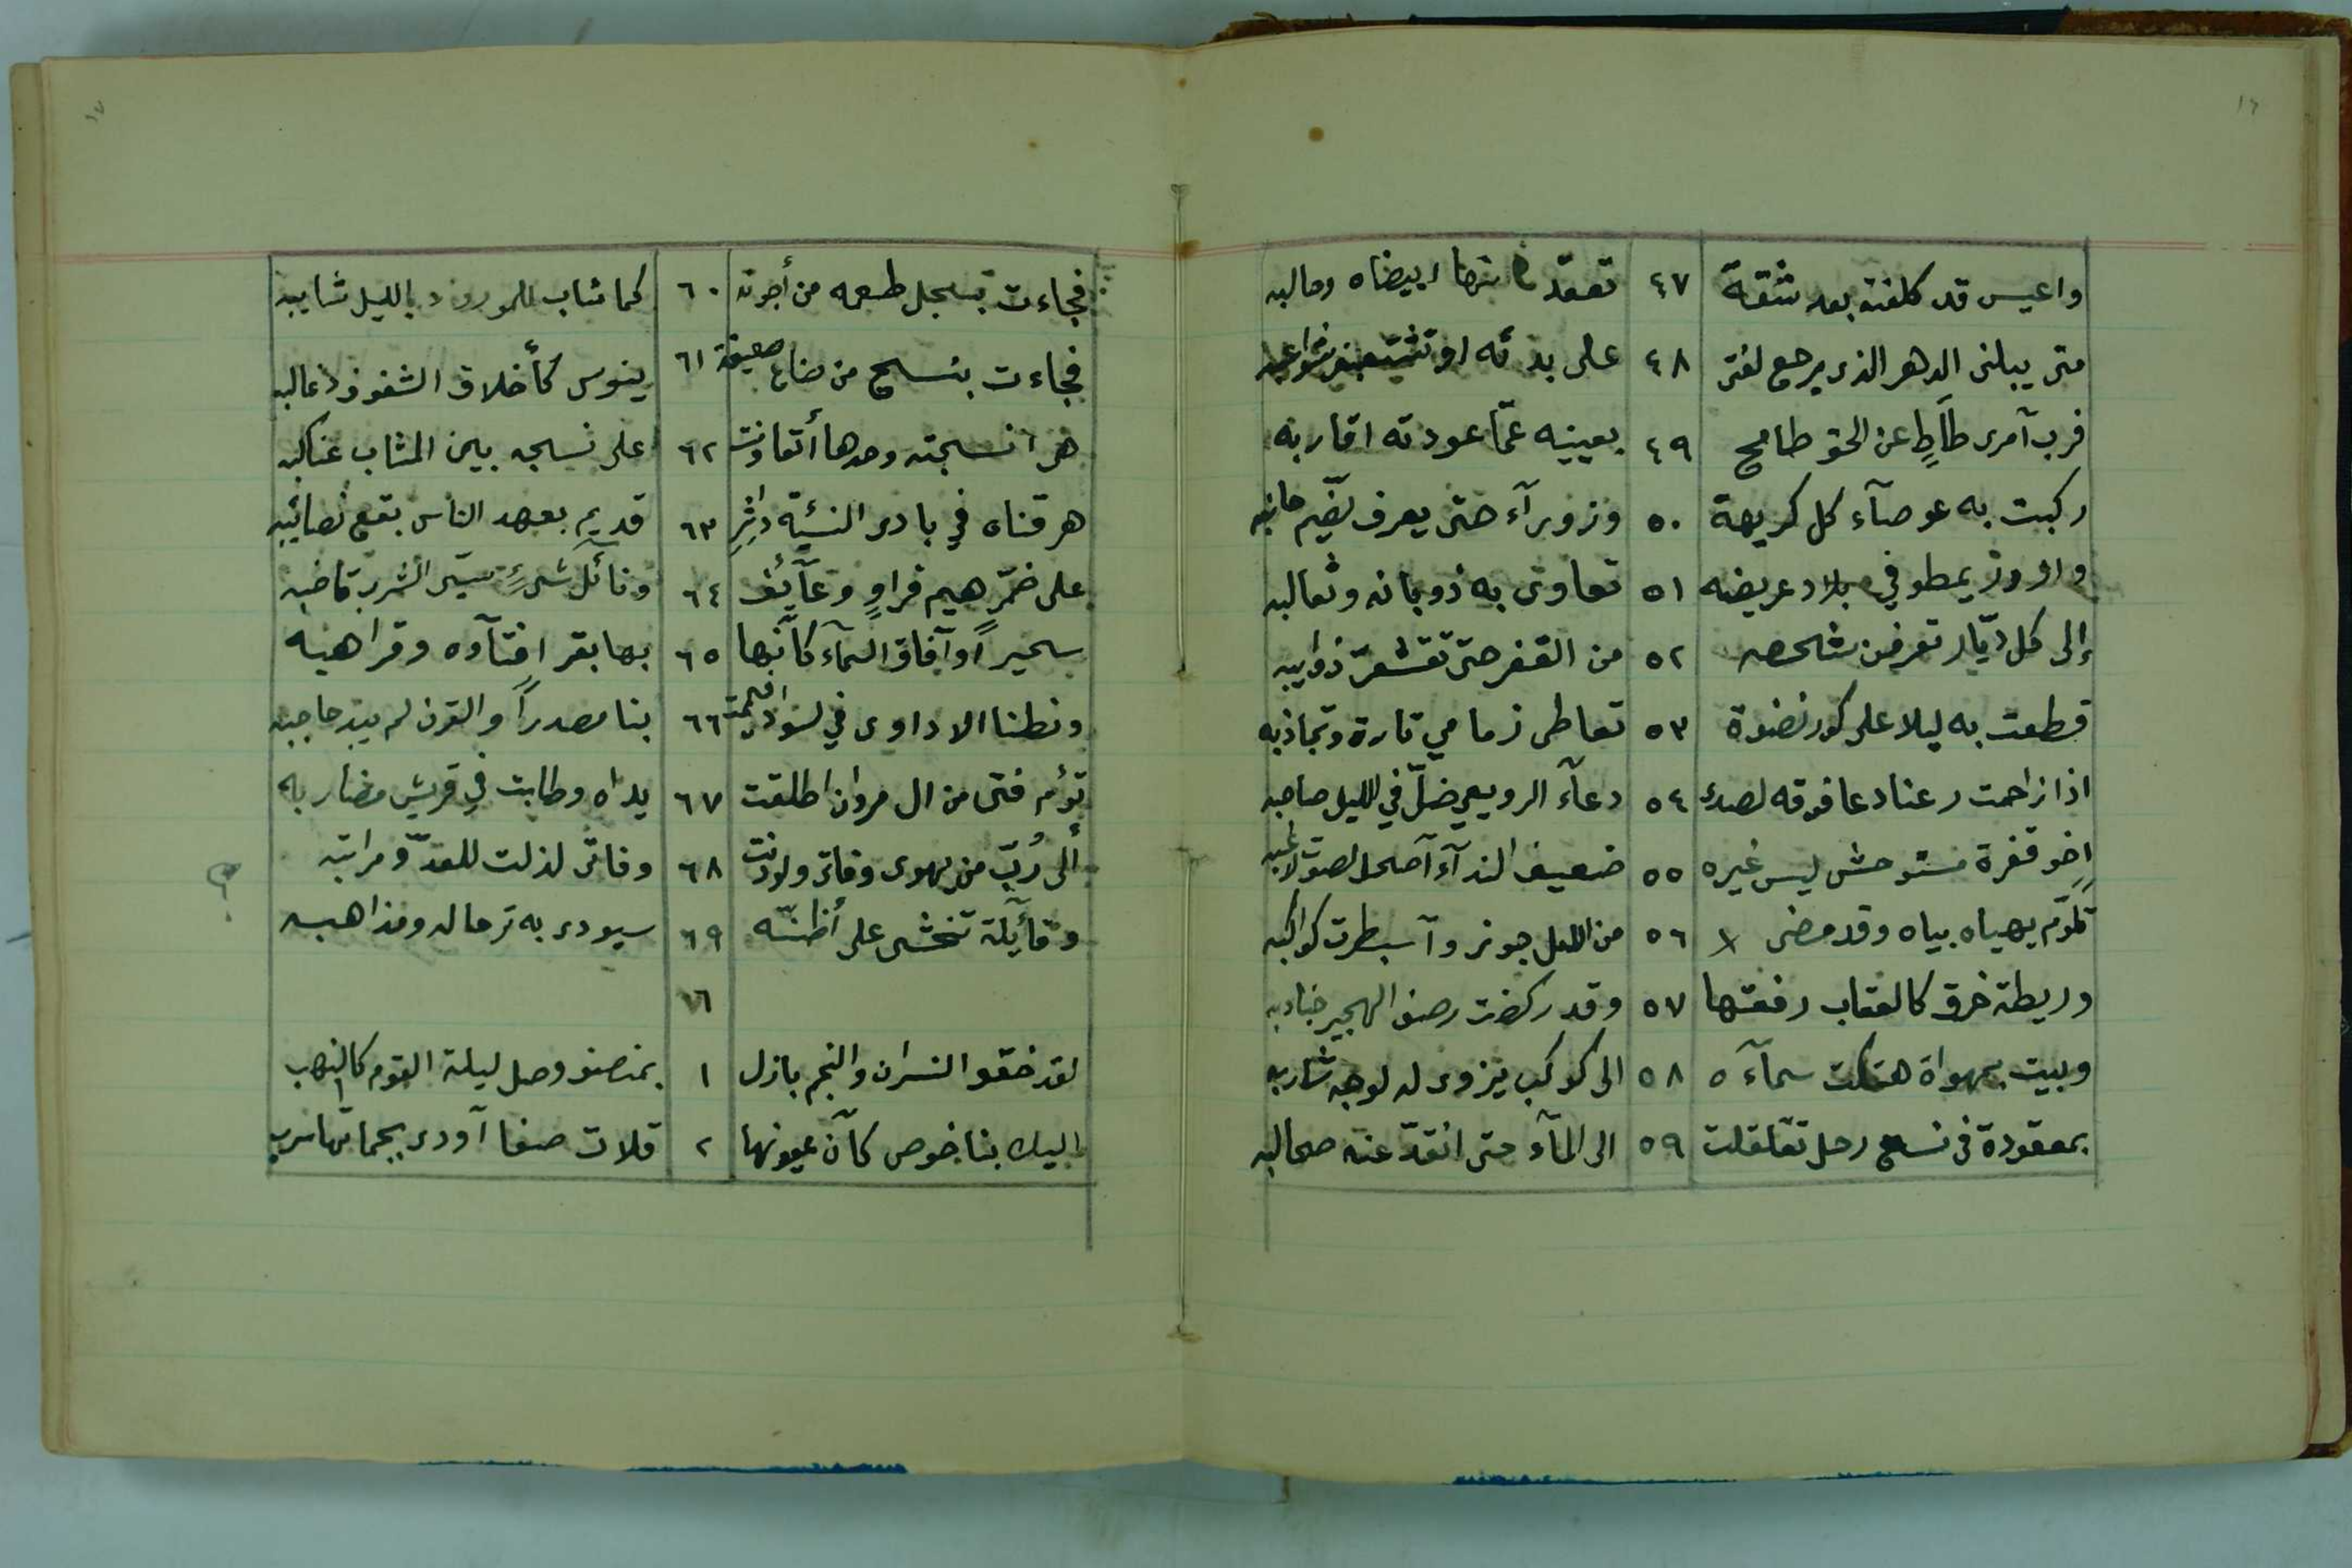 ١٦
واعيس قد كلفته بعد شقة ٤٧ تعقد منها ابيضاه وحالبه
متى يبلنى الدهر الذى يرجع لفتى ٤٨ على بدئه او
فرب آمرى طاطٍ عن الحق طامح ٤٩ بعينيه عمّا عودته اقاربه
ركبت به عوصآء كل كريهة ٥٠ وزورآء حتى يعرف لضّيم جانبه
وازور يمطو في بلاد عريضه ٥١ تعاوى به ذوبانه وثعالبه
إلى كل ديّار تعرفن شخصه ٥٢ من القفر حتى تقشعرّ ذوايبه
قطعت به ليلا على كور نضوة ٥٣ تعاطى زمامي تارة وتجاذبه
اذا زاحمت رعنا دعا فوقه لصدى ٥٤ دعآء الرويعي ضلّ في الليل صاحبه
اخو قفرة مستوحش ليس غيره ٥٥ ضعيف الندآء آصحل لصوت لاغبه
تلوّم يهياه بياه وقد مضى ٥٦ من الليل جوز وآسبطرت كواكبه
وريطة خرق كالعقاب رفعتها ٥٧ وقد ركضت رضف الهجير جنادبه
وبيت بمهواة هتكت سمآءه ٥٨ الى كوكب يزوى له لوجه شاربه
بمعقودة فى نسع رحل تقلقلت ٥٩ الى المآء حتى انقدّ عنه صحالبه
١٧
فجاءت بسجل طعمه من أجونه ٦٠ كما شاب للمورود بالليل شايبه
فجاءت بنسج من صناع ضعيفة ٦١ ينوس كأخلاق الشفوف ذعالبه
هى انسجته وحدها أتعاونت ٦٢ على نسجه بين المثاب عناكبه
هرقناه في بادى النشيئة داثرٍ ٦٣ قديم بعهد الناس بقع نصائبه
على ضمّر هيم فراوٍ وعآيف ٦٤ ونائل شىءٍ سيّى الشرب قاضبه
سحيراً وآفاق السمآء كأنّها ٦٥ بها بقر افتآوه وقراهبه
ونطنا الاداوى في لسواد فيممت ٦٦ بنا مصدراً والقرن لم يبد حاجبه
تؤم فتى من ال مروان اطلقت ٦٧ يداه وطابت في قريش مضاربه
ألى رُبّ من يهوى وفاتى ولو دنت ٦٨ وفاتى لذلت للعدوّ مراتبه ؟
وقآيلة تخشى على أظنّه ٦٩ سيودى به ترحاله ومذاهبه
١٦
لقد خفق النسران والنجم بازل ١ بمنصف وصل ليلة القوم كالنهب
اليك بنا خوص كآن عيونها ٢ قلات صفا آودى بجماتها سرب